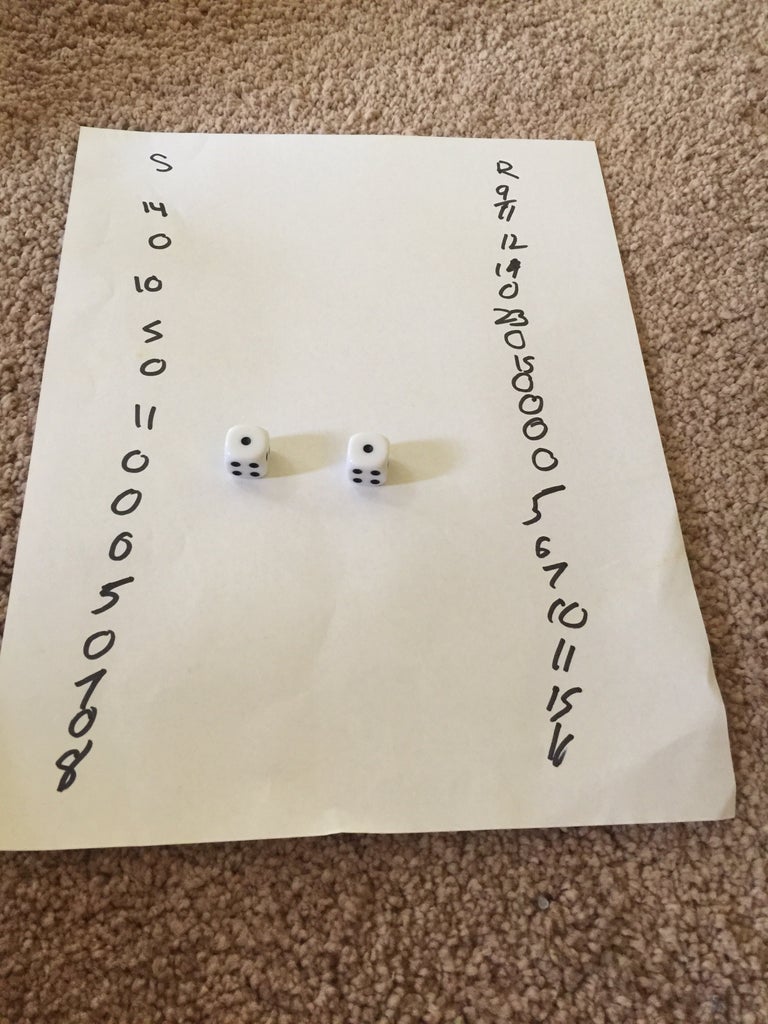 S
14
0
10
5
0
11
0
0
6
5
0
7
0
8
R
9
11
12
0
23
0
15
0
0
0
0
5
6
7
10
11
15